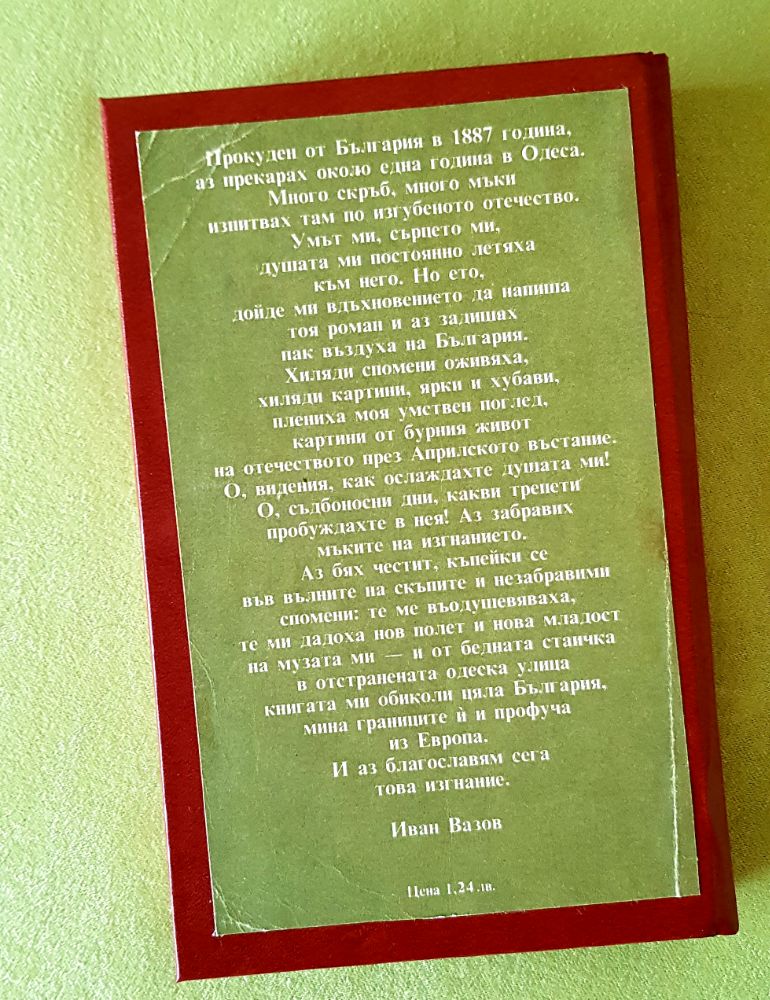 Прокуден от България в 1887 година,
аз прекарах около една година в Одеса.
Много скръб, много мъки
изпитвах там по изгубеното отечество.
Умът ми, сърцето ми,
душата ми постоянно летяха
към него. Но ето,
дойде ми вдъхновението да напиша
тоя роман и аз задишах
пак въздуха на България.
Хиляди спомени оживяха,
хиляди картини, ярки и хубави,
плениха моя умствен поглед,
картини от бурния живот
на отечеството през Априлското въстание.
О, видения, как ослаждахте душата ми!
О, съдбоносни дни, какви трепети
пробуждахте в нея! Аз забравих
мъките на изгнанието.
Аз бях честит, къпейки се
във вълните на скъпите и незабравими
спомени: те ме въодушевяваха,
те ми дадоха нов полет и нова младост
на музата ми — и от бедната стаичка
в отстранената одеска улица
книгата ми обиколи цяла България,
мина границите ѝ и профуча
из Европа.
И аз благославям сега
това изгнание.
Иван Вазов
Цена 1,24 лв.